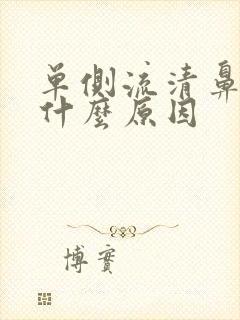 单侧流清鼻
什麼原因
博實